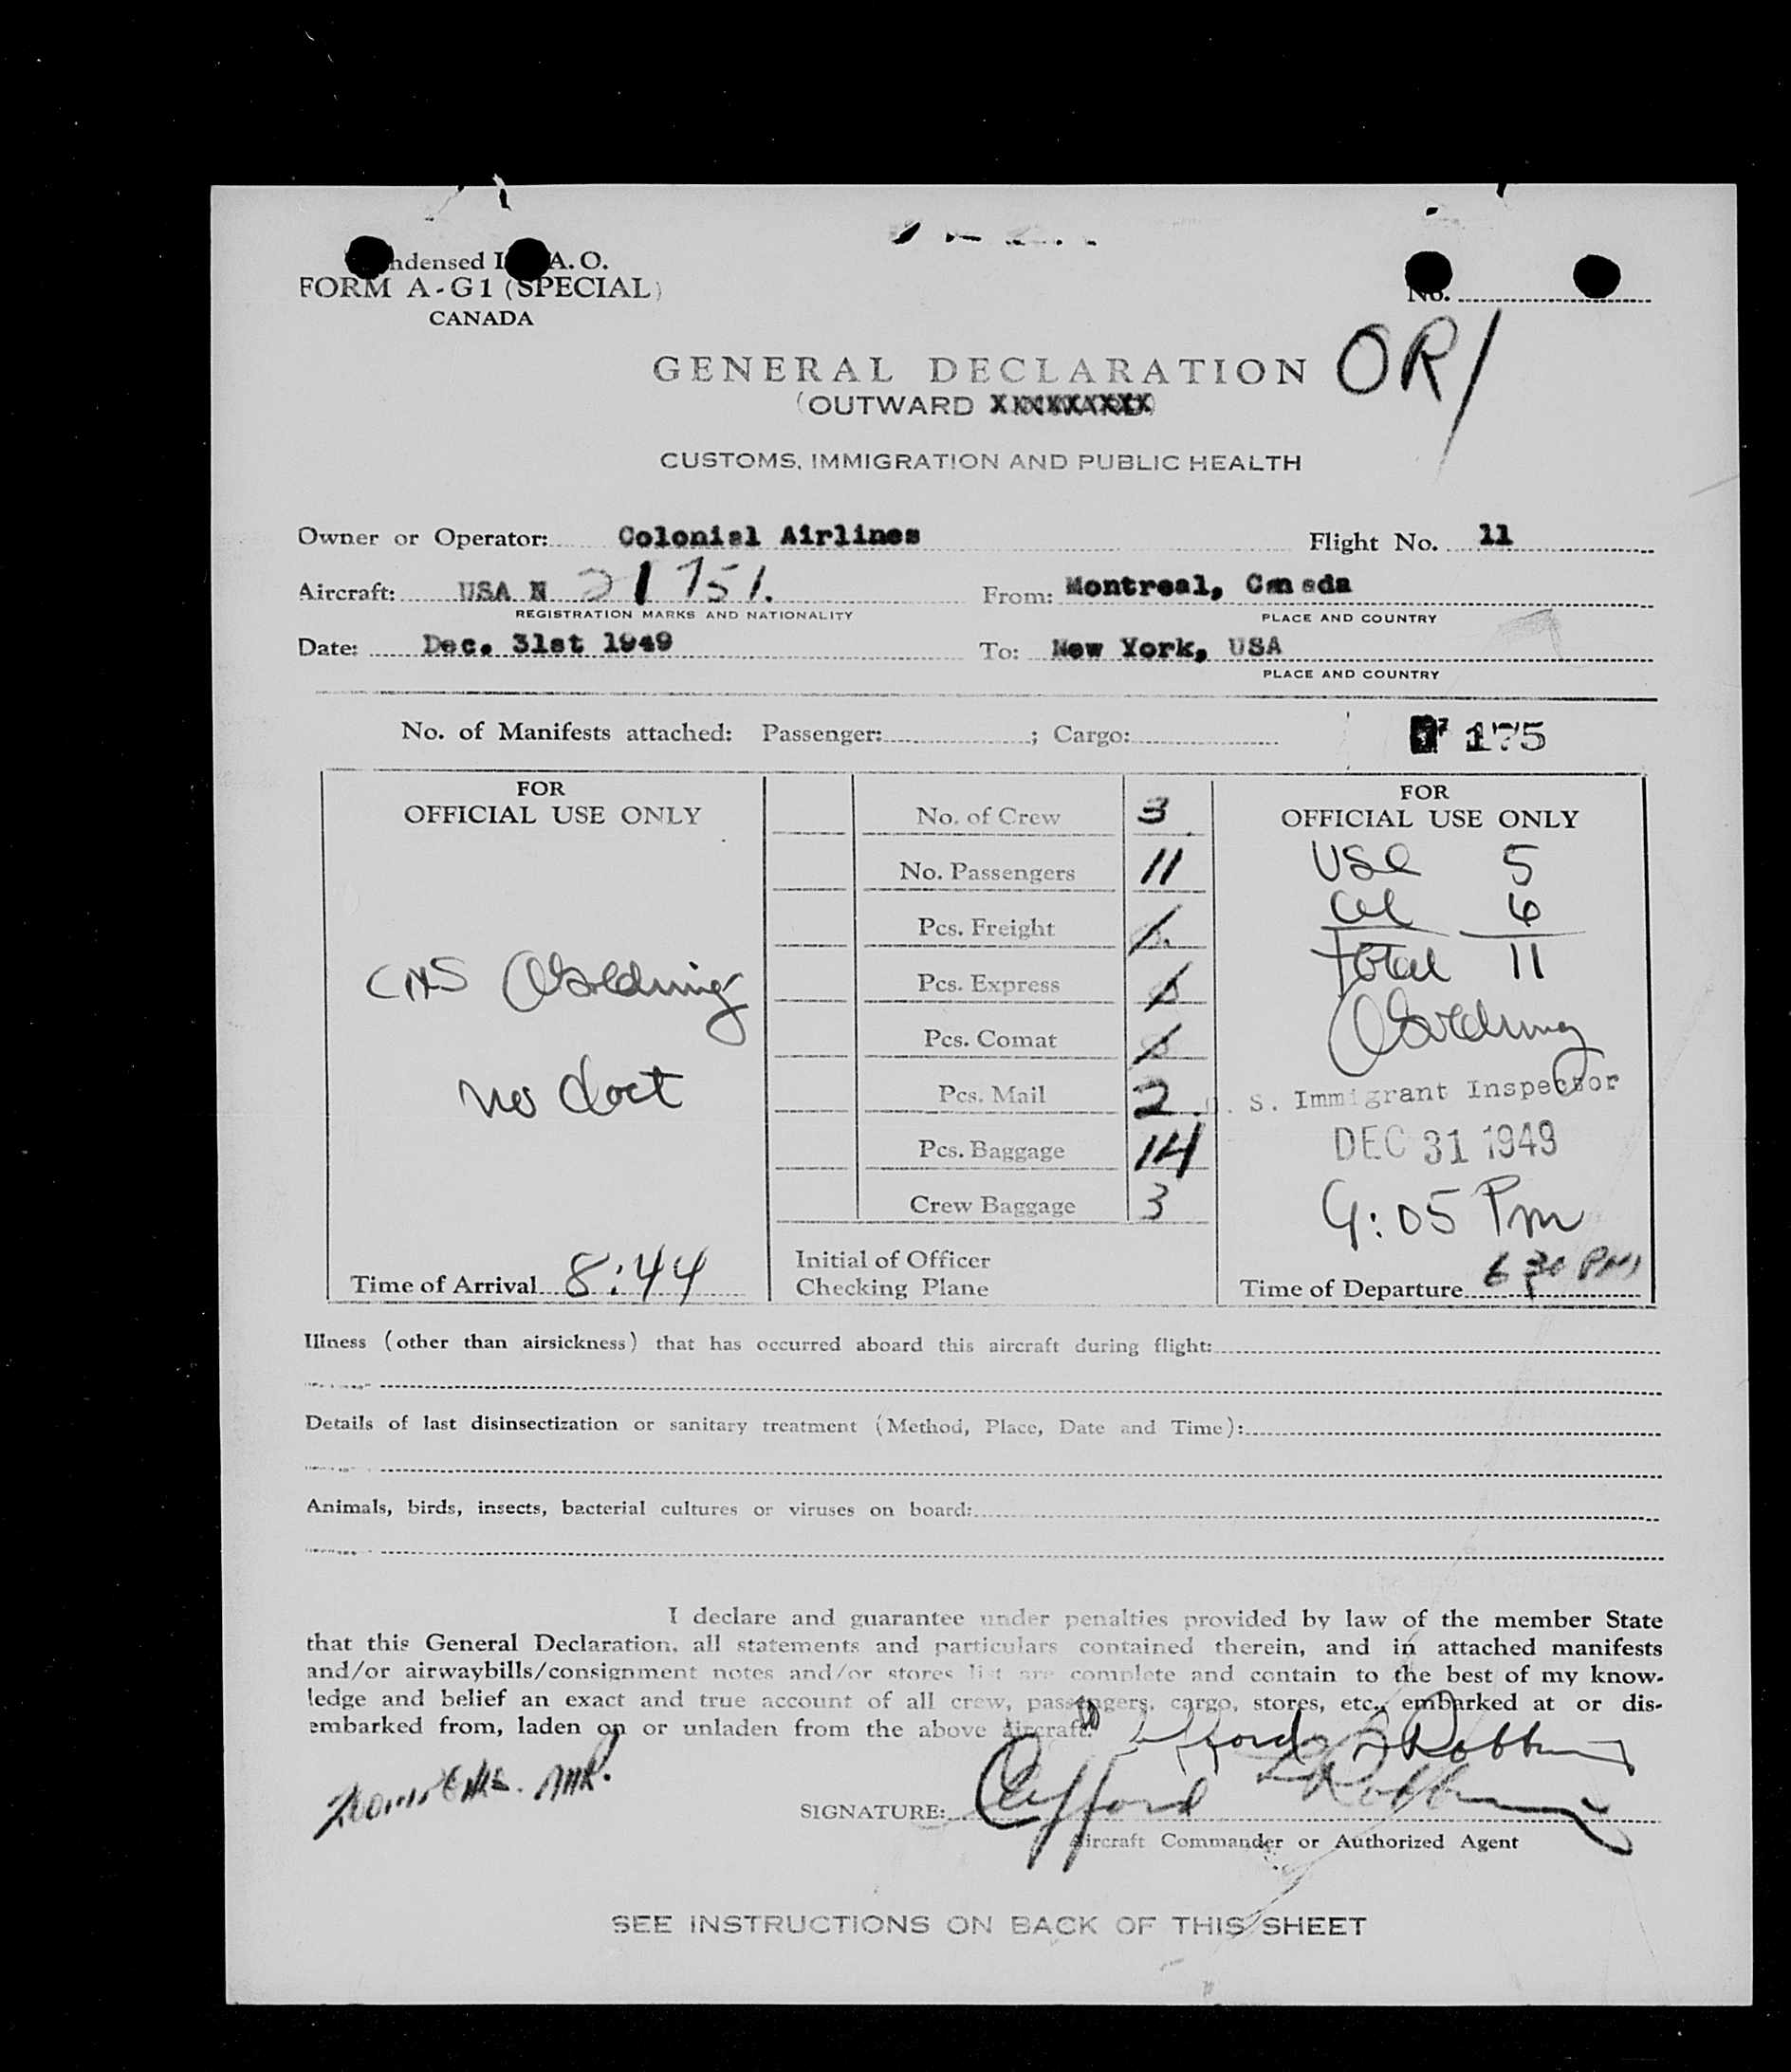 ndensed I A. O.
FORM A-G1 (SPECIAL)
CANADA
No.
GENERAL DECLARATION
OR/
(OUTWARD
CUSTOMS, IMMIGRATION AND PUBLIC HEALTH
Owner or Operator: Colonial Airlines Flight No. 11
Aircraft: USA N 21751. From: Montreal, Canada
REGISTRATION MARKS AND NATIONALITY PLACE AND COUNTRY
Date: Dec. 31st 1949 To: New York, USA
PLACE AND COUNTRY
No. of Manifests attached: Passenger: ; Cargo: 175
FOR
OFFICIAL USE ONLY
No doct
Time of Arrival 8:44
No. of Crew 3
No. Passengers 11
Pcs. Freight
Pcs. Express
Pcs. Comat
Pcs. Mail 2
Pcs. Baggage 14
Crew Baggage 3
Initial of Officer
Checking Plane
FOR
OFFICIAL USE ONLY
USC 5
6
Total 11
S. Immigrant Inspector
DEC 31 1949
9:05 Pm
Time of Departure 6 30 PM
Illness (other than airsickness) that has occurred aboard this aircraft during flight:
Details of last disinsectization or sanitary treatment (Method, Place, Date and Time):
Animals, birds, insects, bacterial cultures or viruses on board:
I declare and guarantee under penalties provided by law of the member State
that this General Declaration, all statements and particulars contained therein, and in attached manifests
and/or airwaybills/consignment notes and/or stores list are complete and contain to the best of my know-
ledge and belief an exact and true account of all crew, passengers, cargo, stores, etc., embarked at or dis-
embarked from, laden on or unladen from the above aircraft.
SIGNATURE: Clifford
Aircraft Commander or Authorized Agent
SEE INSTRUCTIONS ON BACK OF THIS SHEET